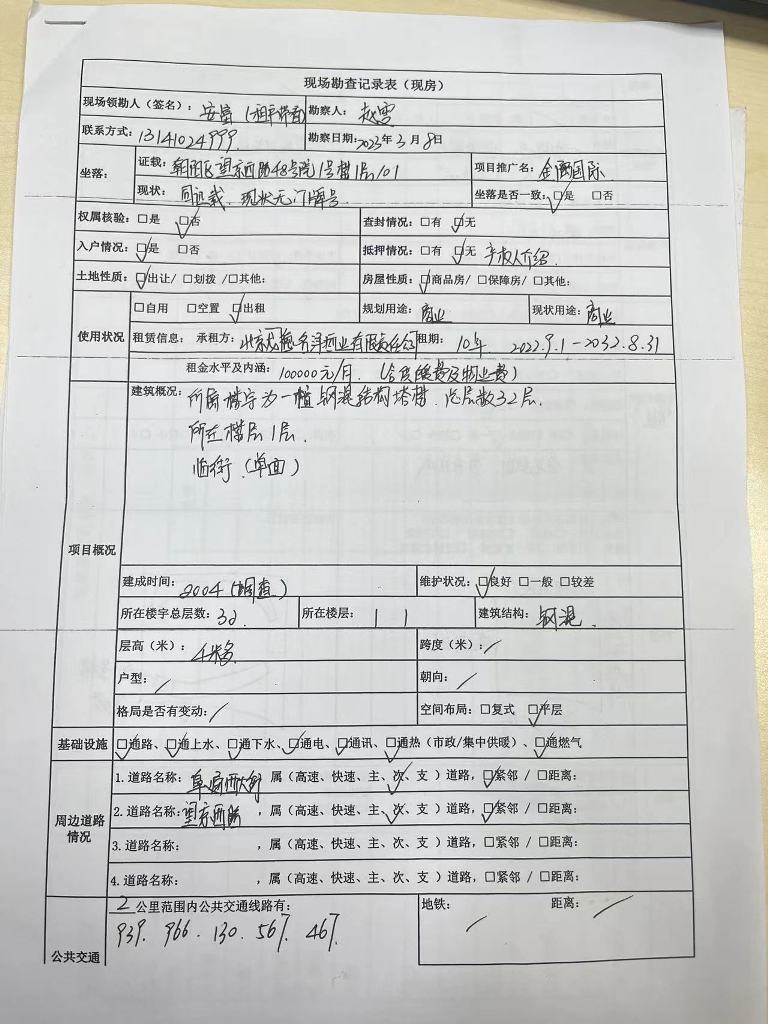 现场勘查记录表（现房）
现场领勘人（签名）： 安 勘察人： 赵雪
联系方式：13141024999. 勘察日期：2023年3月8日
坐落： 证载：朝阳区望京西路48号院1号楼1层101 项目推广名：金隅国际
现状：同证载，现状无门牌号 坐落是否一致：☑是 □否
权属核验：□是 ☑否 查封情况：□有 ☑无
入户情况：☑是 □否 抵押情况：□有 ☑无 产权人介绍.
土地性质：☑出让/ □划拨 /□其他： 房屋性质：☑商品房/ □保障房/ □其他：
使用状况 □自用 □空置 ☑出租 规划用途：商业 现状用途：商业
租赁信息： 承租方：北京 有限责任公司 租期： 10年 2022.9.1-2032.8.31
租金水平及内涵：100000元/月. （含 暖费及物业费）
项目概况 建筑概况：所属楼宇为一幢钢混结构塔楼. 总层数32层.
所在楼层1层.
临街（单面）
建成时间：2004（调查） 维护状况：☑良好 □一般 □较差
所在楼宇总层数：32. 所在楼层： 1 建筑结构：钢混.
层高（米）：4米多 跨度（米）：/
户型：/ 朝向：/
格局是否有变动：/ 空间布局：□复式 ☑平层
基础设施 ☑通路、☑通上水、☑通下水、☑通电、☑通讯、☑通热（市政/集中供暖）、☑通燃气
周边道路情况 1. 道路名称：阜通西大街，属（高速、快速、主、次、支）道路，☑紧邻 / □距离：
2. 道路名称：望京西路，属（高速、快速、主、次、支）道路，☑紧邻 / □距离：
3. 道路名称： ，属（高速、快速、主、次、支）道路，□紧邻 / □距离：
4. 道路名称： ，属（高速、快速、主、次、支）道路，□紧邻 / □距离：
公共交通 2 公里范围内公共交通线路有： 地铁：/ 距离：/
939. 966. 130. 567. 467.